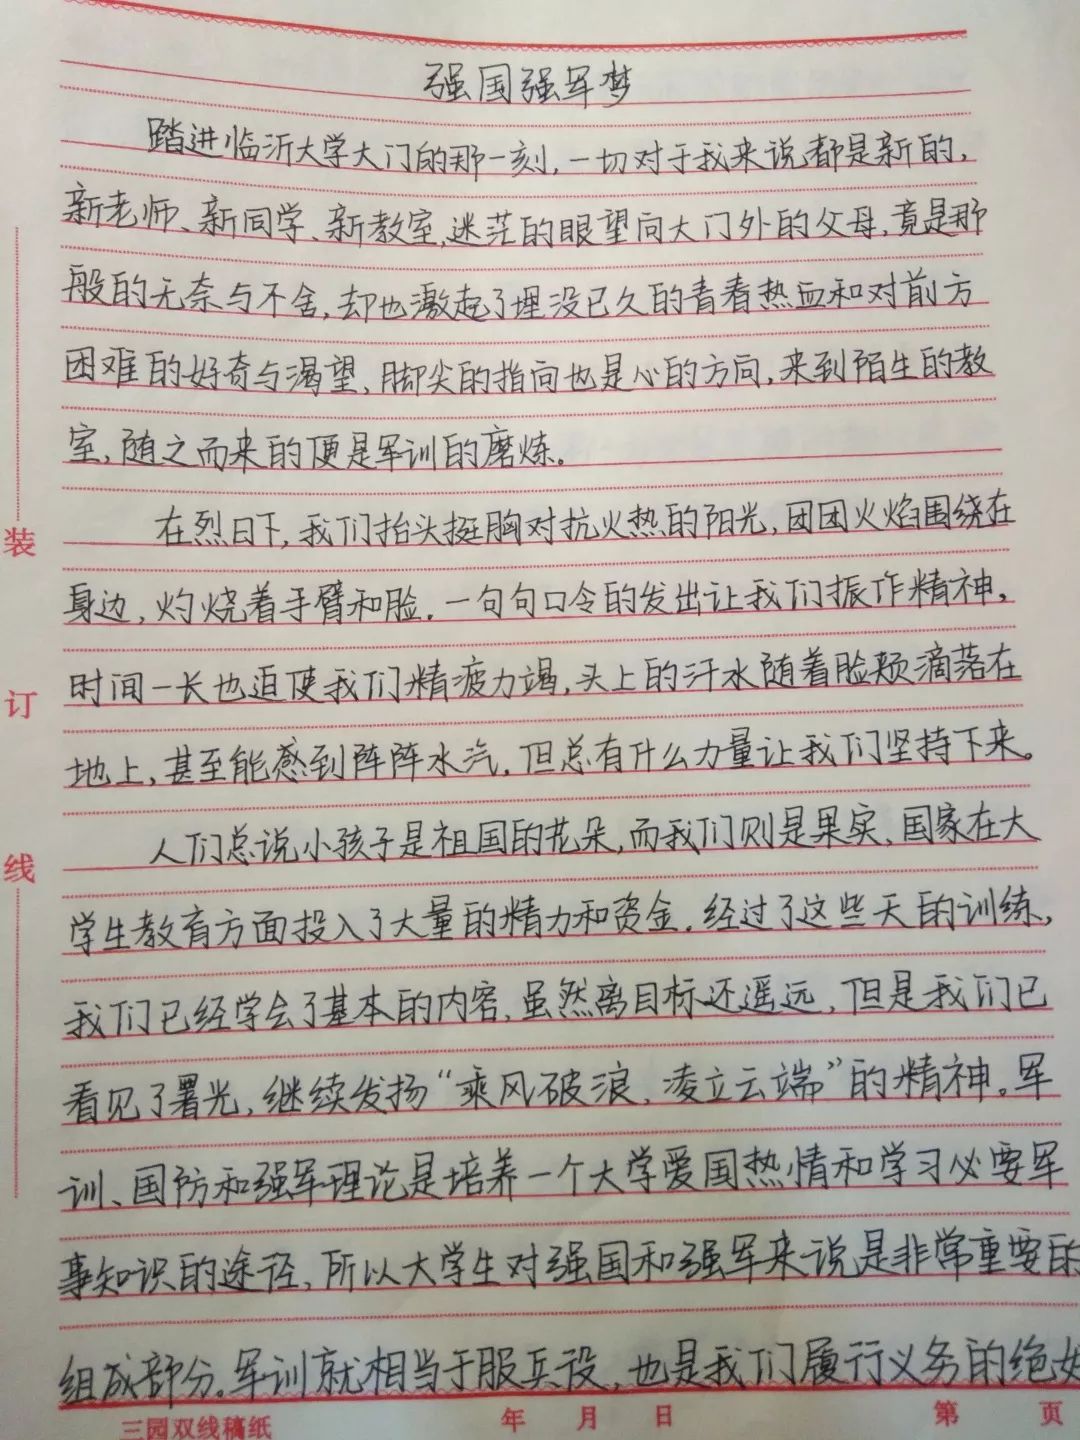 强国强军梦
踏进临沂大学大门的那一刻，一切对于我来说都是新的，
新老师、新同学、新教室，迷茫的眼望向大门外的父母，竟是那
般的无奈与不舍，却也激起了埋没已久的青春热血和对前方
困难的好奇与渴望，脚尖的指向也是心的方向，来到陌生的教
室，随之而来的便是军训的磨炼。
在烈日下，我们抬头挺胸对抗火热的阳光，团团火焰围绕在
装
身边，灼烧着手臂和脸．一句句口令的发出让我们振作精神，
时间一长也迫使我们精疲力竭，头上的汗水随着脸颊滴落在
订
地上，甚至能感到阵阵水汽，但总有什么力量让我们坚持下来。
人们总说小孩子是祖国的花朵，而我们则是果实、国家在大
线
学生教育方面投入了大量的精力和资金．经过了这些天的训练，
我们已经学会了基本的内容，虽然离目标还遥远，但是我们已
看见了署光，继续发扬“乘风破浪，凌立云端”的精神。军
训、国防和强军理论是培养一个大学爱国热情和学习必要军
事知识的途径，所以大学生对强国和强军来说是非常重要的
组成部分。军训就相当于服兵役，也是我们履行义务的绝
三园双线稿纸 年 月 日 第 页